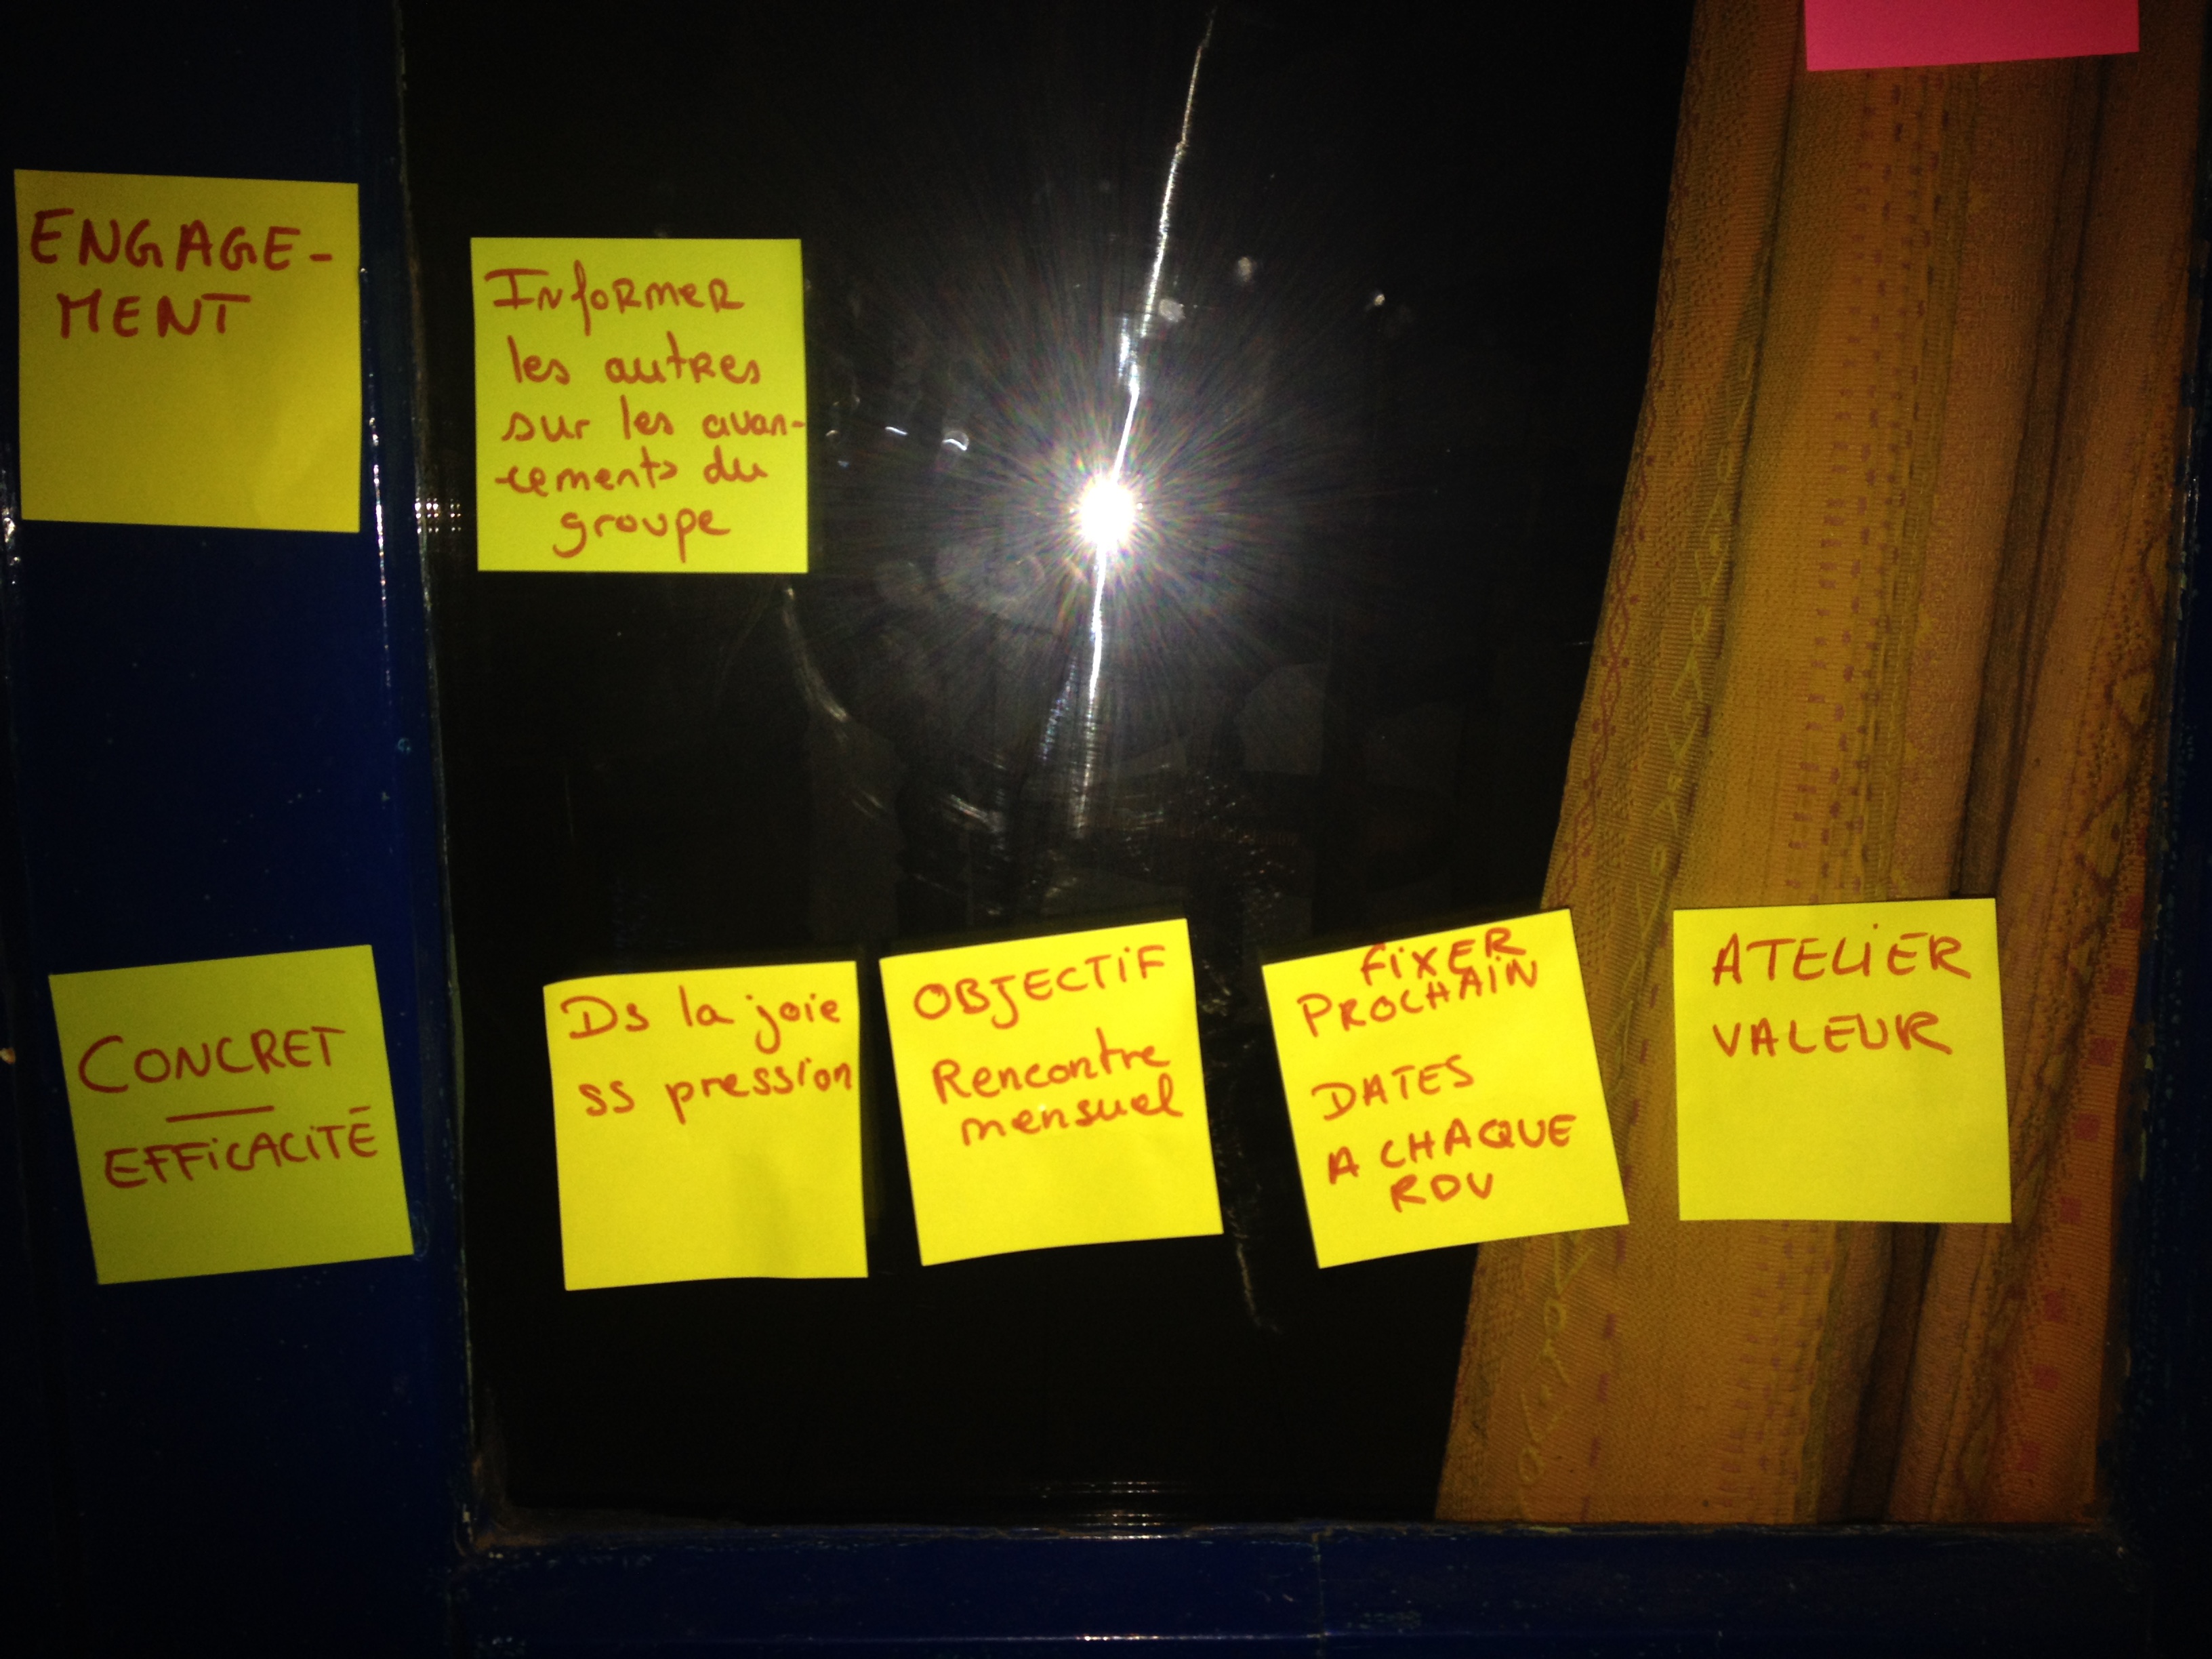 ENGAGE-
MENT
Informer
les autres
sur les avan-
-cements du
groupe
CONCRET
EFFICACITÉ
Ds la joie
ss pression
OBJECTIF
Rencontre
mensuel
FIXER
PROCHAIN
DATES
A CHAQUE
RDV
ATELIER
VALEUR